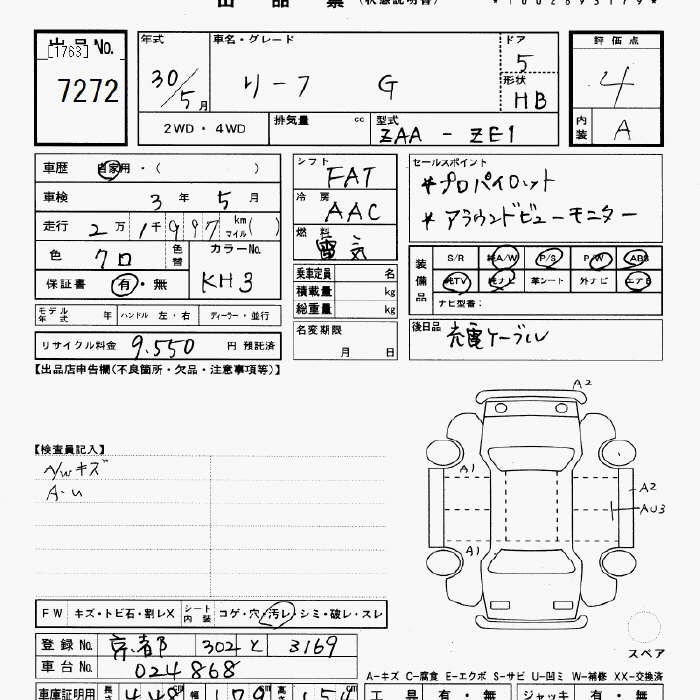 出 品 票 (状態説明書)
出品No. 年式 車名・グレード ドア 評価点
[1763]
7272 30/5月 リーフ G 5 4
形状 HB
2WD・4WD 排気量 cc 型式 ZAA - ZE1 内装 A
車歴 自家用・( )
車検 3年 5月
走行 2万 1千 997 km マイル( )
色 クロ 色替 カラーNo. KH3
保証書 有・無
モデル年式 年 ハンドル 左・右 ディーラー・並行
リサイクル料金 9.550 円 預託済
シフト FAT
冷房 AAC
燃料 電気
乗車定員 名
積載量 kg
総重量 kg
名変期限 月 日
セールスポイント
*プロパイロット
*アラウンドビューモニター
装備品 S/R 純A/W P/S P/W ABS
純TV 純ナビ 革シート 外ナビ エアB
ナビ型番:
後日品 充電ケーブル
【出品店申告欄(不良箇所・欠品・注意事項等)】
【検査員記入】
A/Wキズ
A・U
A2
A1
A2
AU3
A1
スペア
FW キズ・トビ石・割レX シート内装 コゲ・穴・汚レ・シミ・破レ・スレ
登録No. 京都 302 と 3169
車台No. 024868
A-キズ C-腐食 E-エクボ S-サビ U-凹ミ W-補修 XX-交換済
車庫証明用 長さ 448 幅 179 高さ 154
工具 有・無 ジャッキ 有・無